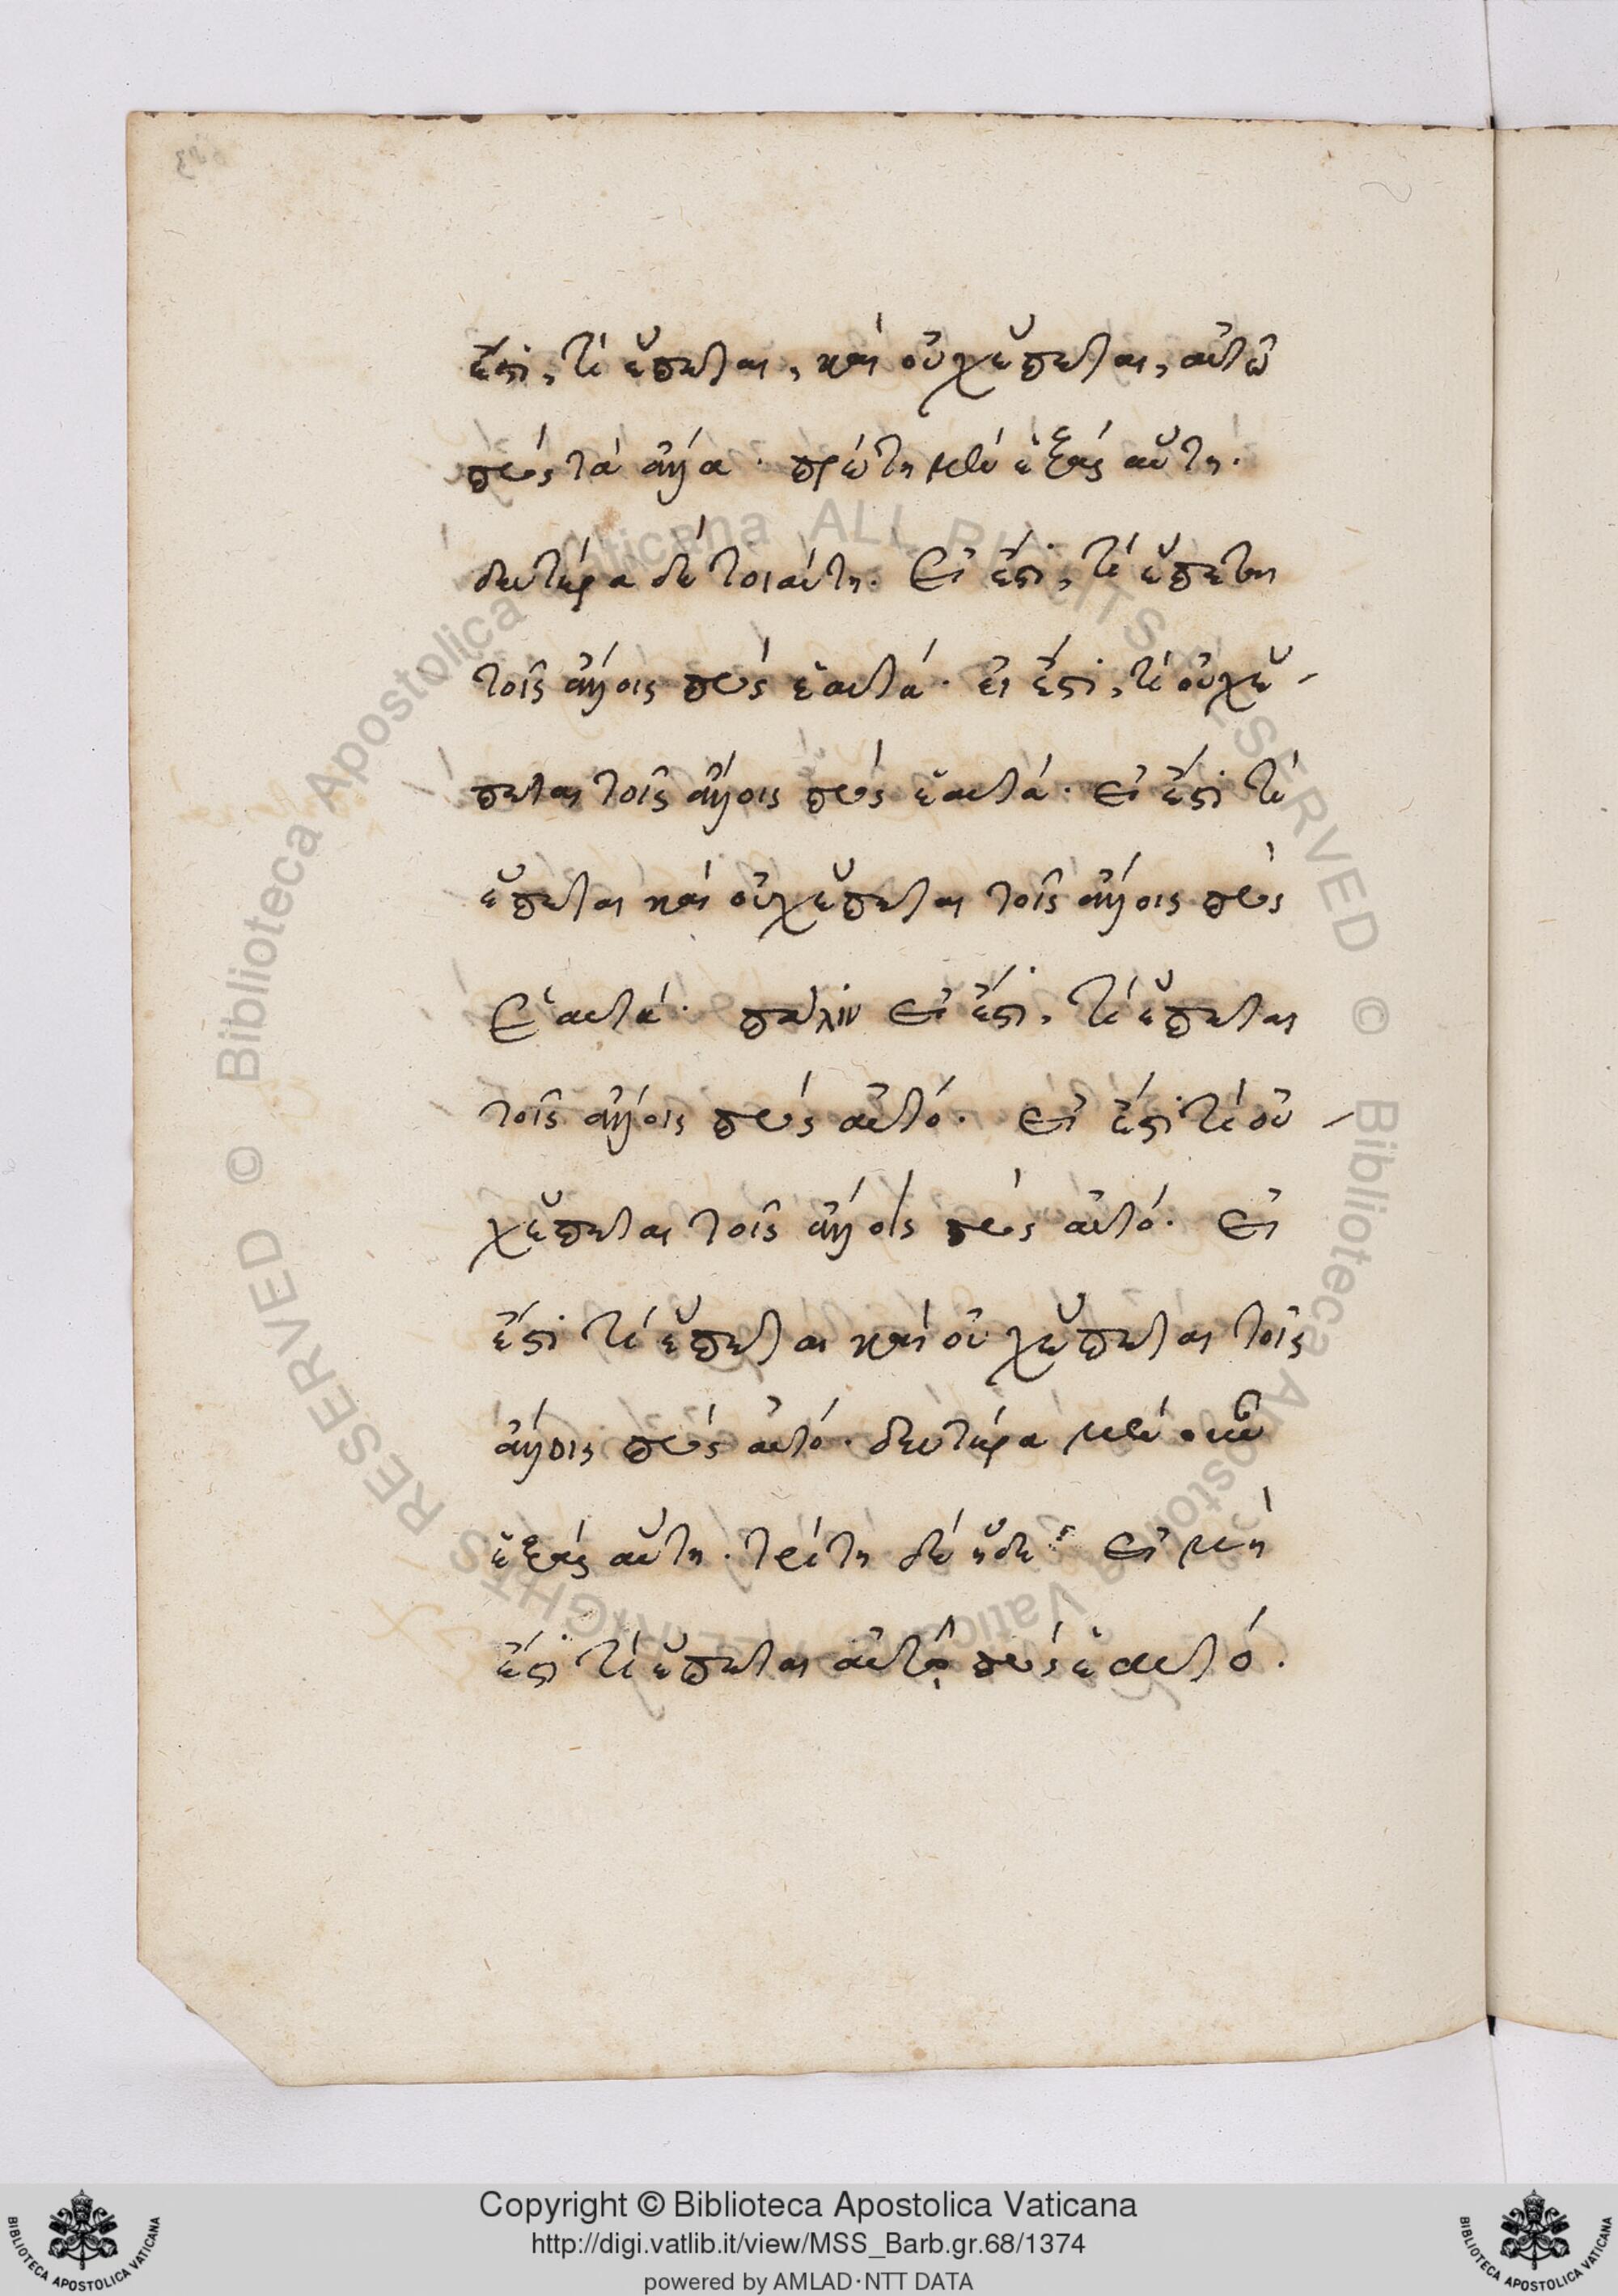 ἔστι, τί ἕπεται, καὶ οὐχ ἕπεται, αὐτῶ
πρὸς τὰ ἄλλα · πρώτη μὲν ἑξὰς αὕτη.
δευτέρα δὲ τοιαύτη. Εἰ ἔστι, τί ἕπεται
τοῖς ἄλλοις πρὸς ἑαυτά · εἰ ἔστι, τί οὐχ ἕ-
πεται τοῖς ἄλλοις πρὸς ἑαυτά · εἰ ἔστι τί
ἕπεται καὶ οὐχ ἕπεται τοῖς ἄλλοις πρὸς
ἑαυτά · πάλιν εἰ ἔστι, τί ἕπεται
τοῖς ἄλλοις πρὸς αὐτό · εἰ ἔστι τί οὐ-
χ ἕπεται τοῖς ἄλλοις πρὸς αὐτό · εἰ
ἔστι τί ἕπεται καὶ οὐχ ἕπεται τοῖς
ἄλλοις πρὸς αὐτό · δευτέρα μὲν οὖν
ἑξὰς αὕτη · τρίτη δὲ ἥδε · εἰ μὴ
ἔστι τί ἕπεται αὐτῷ πρὸς ἑαυτό.
Copyright © Biblioteca Apostolica Vaticana
http://digi.vatlib.it/view/MSS_Barb.gr.68/1374
powered by AMLAD·NTT DATA
BIBLIOTECA APOSTOLICA VATICANA
BIBLIOTECA APOSTOLICA VATICANA
© Biblioteca Apostolica Vaticana ALL RIGHTS RESERVED
© Biblioteca Apostolica Vaticana ALL RIGHTS RESERVED